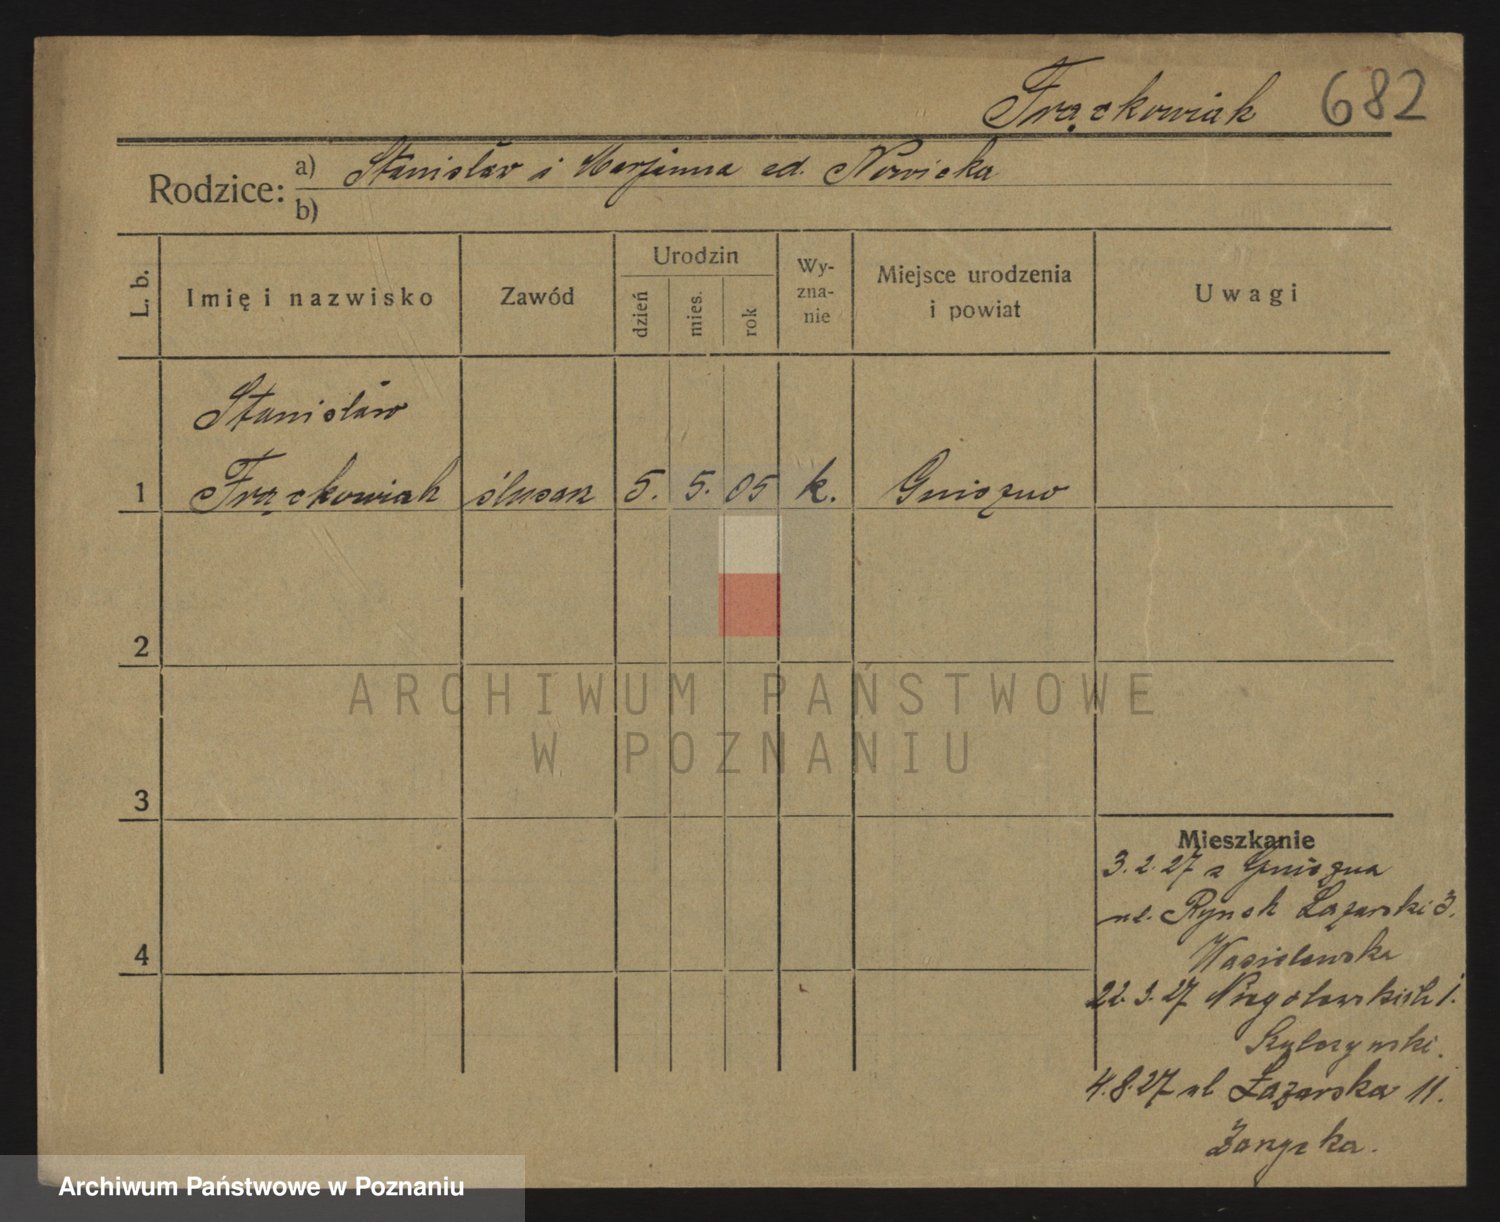 Frąckowiak 682
Rodzice: a) Stanisław i Marjanna zd. Nowicka
b)
L. b.
Imię i nazwisko
Zawód
Urodzin
dzień
mies.
rok
Wy-
zna-
nie
Miejsce urodzenia
i powiat
Uwagi
Stanisław
1 Frąckowiak ślusarz 5. 5. 05 k. Gniezno
2
3
4
Mieszkanie
3. 2. 27 z Gniezna
ul. Rynek Łazarski 3.
Wasielewska
22. 3. 27 1.
4. 8. 27 ul Łazarska 11.
ARCHIWUM PAŃSTWOWE
W POZNANIU
Archiwum Państwowe w Poznaniu